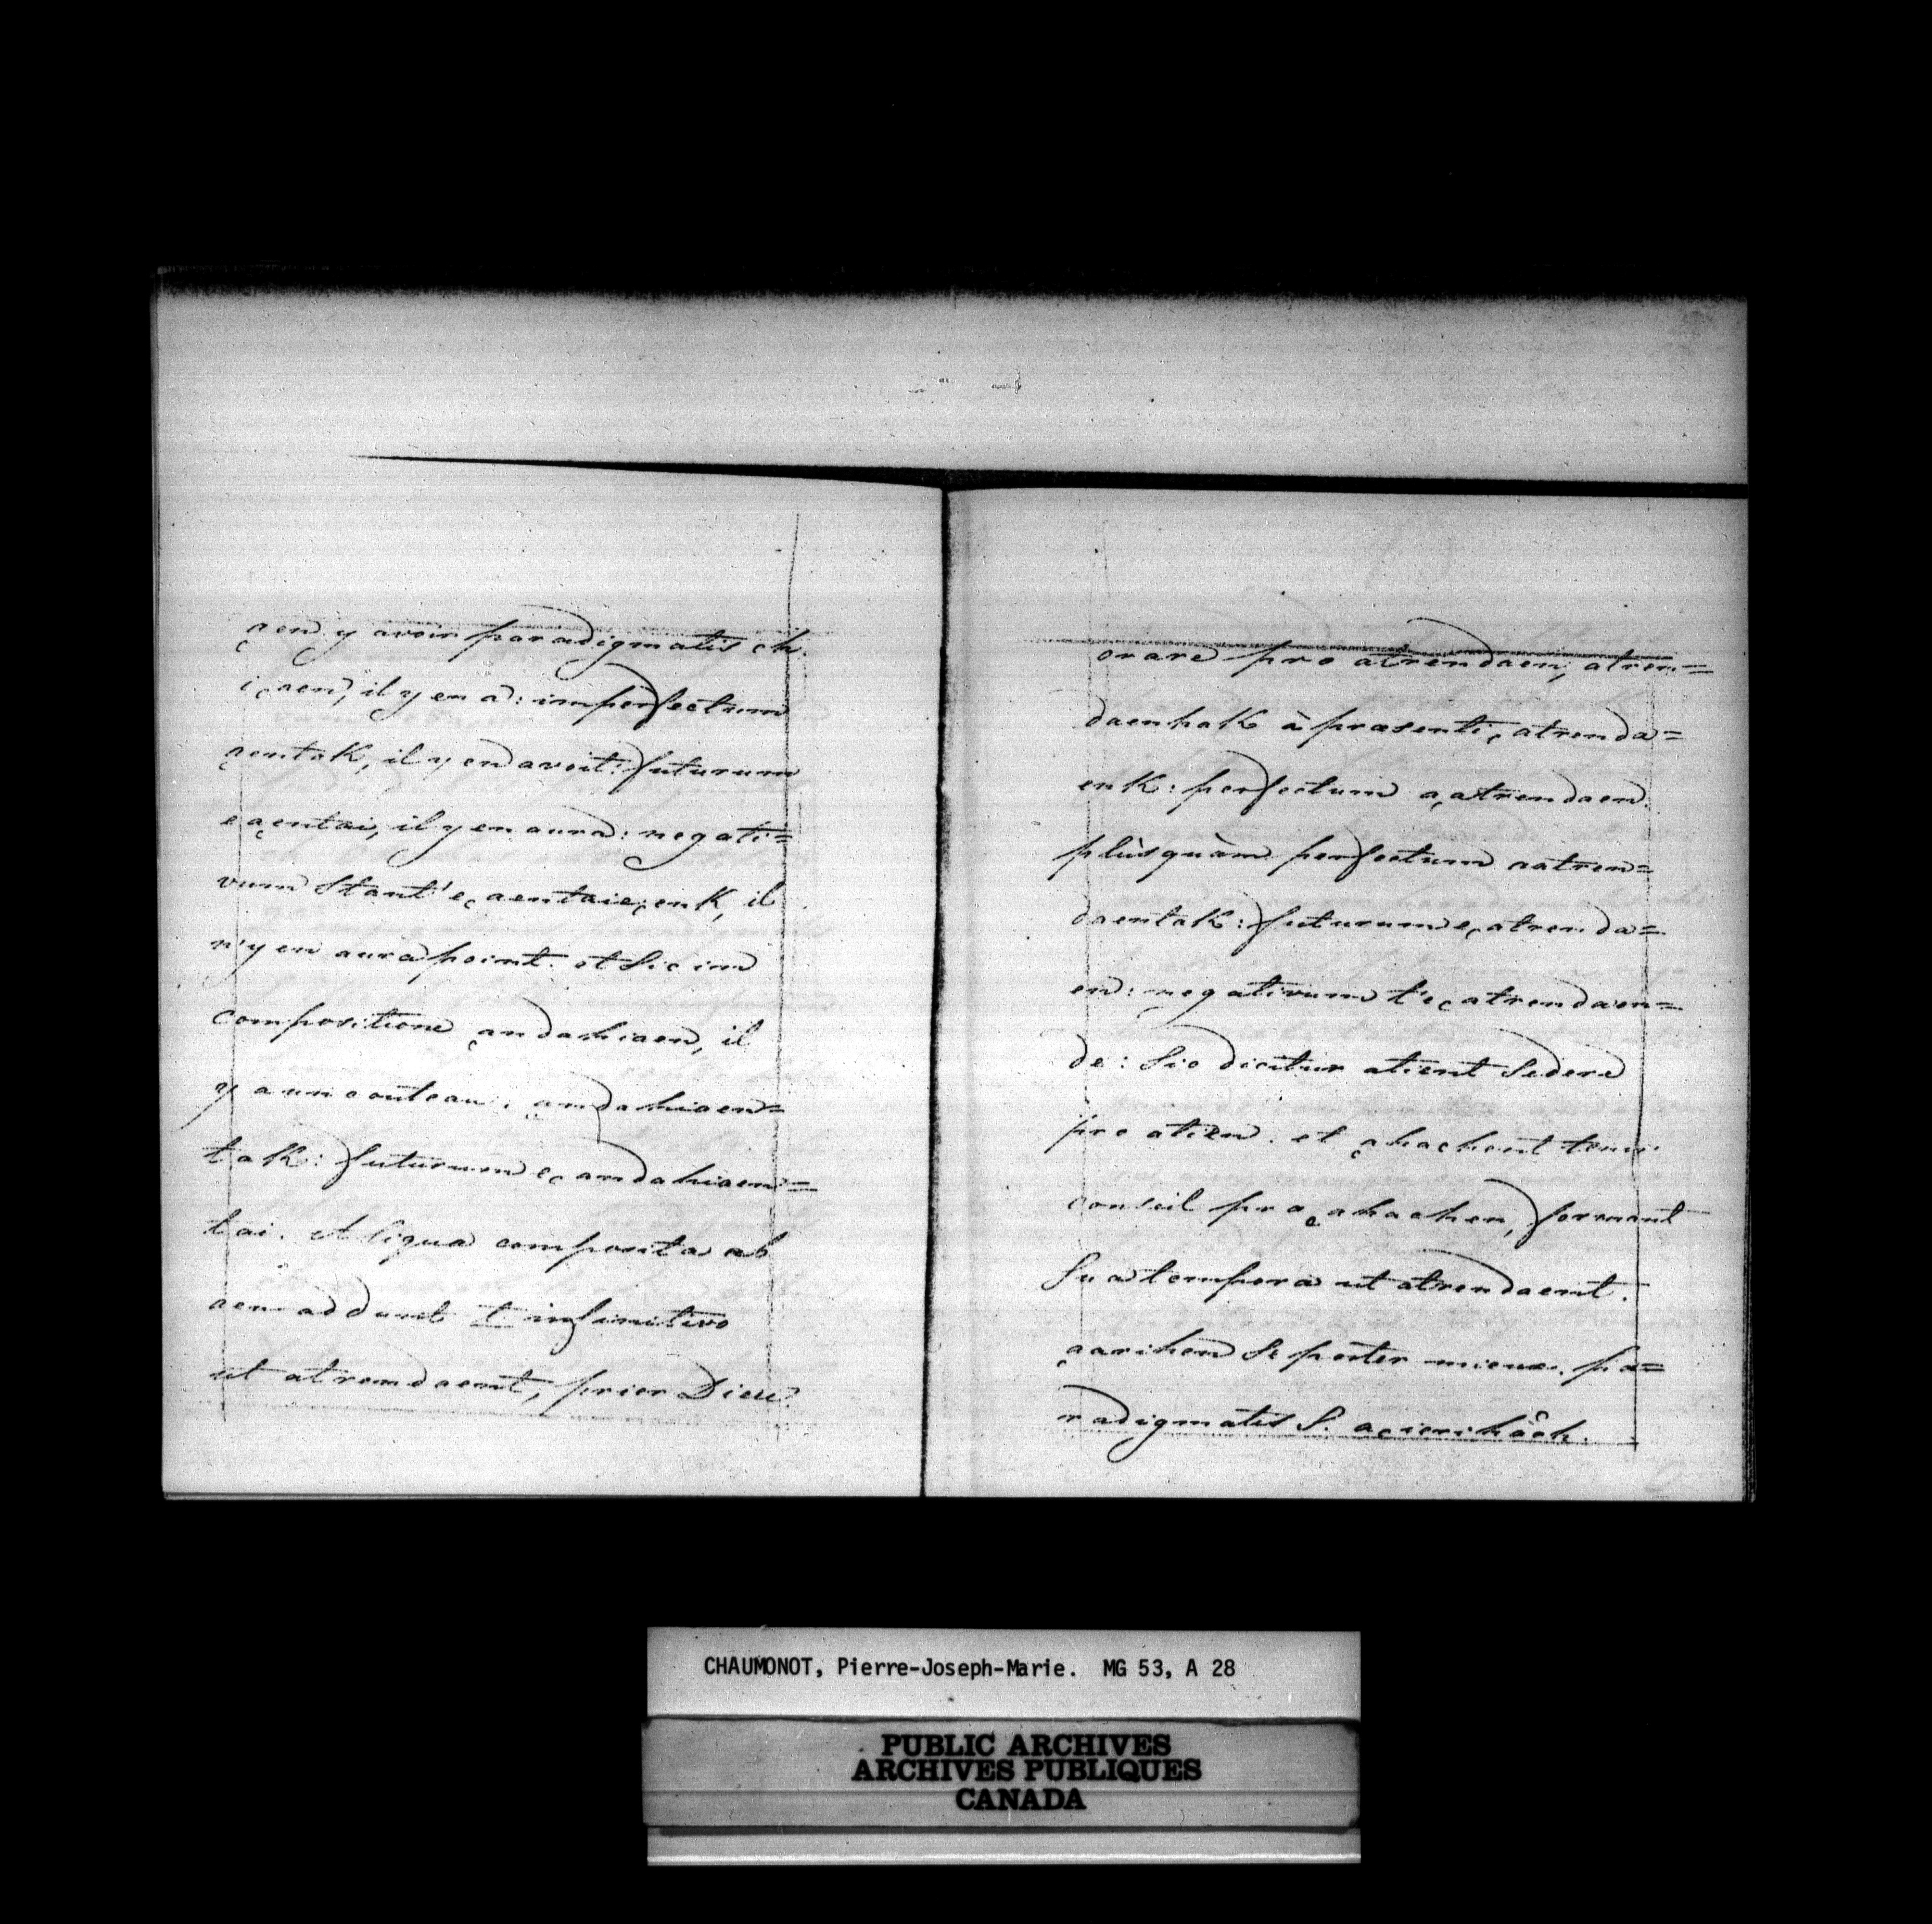 ąen y avoir paradigmatis ch.
i ąen, il y en a: imperfectum
ąentaK, il y en avoit: futurum
e ąentai, il y en aura: negati=
vum stant'eç aentaie, enK, il
n'y en aura point. et sic in
compositione ąndahiaen, il
y a un couteau. ąndahiaen=
taK: futurum eç andahiaen=
tai. Aliqua composita ab
aen addunt t infinitivo
ut atrendaent, prier Dieu.
orare pro atrendaen, atren=
daenhaK à præsenti, atrenda=
enK: perfectum açatrendaen.
plùsquàm perfectum aatren=
daentaK: futurum eçatrenda=
en: negativum t'eçatrendaen=
de: Sic dicitur atient Sedere
pro atien. et ąhachent tenir
conseil pro ąhachen, formant
Sua tempora ut atrendaent.
ąarihen Se porter mieux. pa=
radigmatis S. açierihâch.
CHAUMONOT, Pierre-Joseph-Marie. MG 53, A 28
PUBLIC ARCHIVES
ARCHIVES PUBLIQUES
CANADA